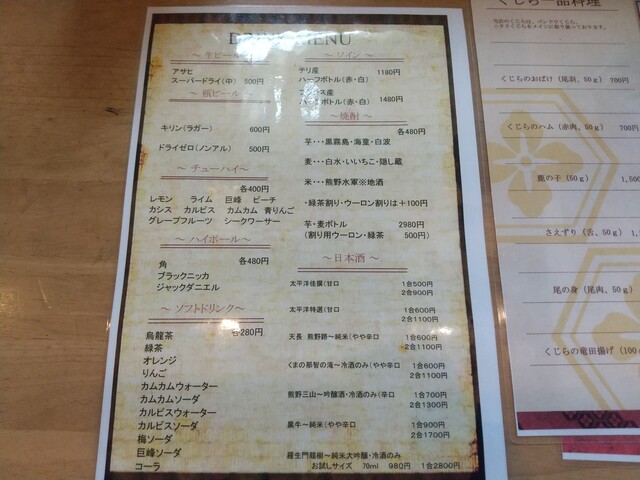 DRINK MENU
～ 生ビール ～
アサヒ
スーパードライ(中) 500円
～ 瓶ビール ～
キリン(ラガー) 600円
ドライゼロ(ノンアル) 500円
～ チューハイ～
各400円
レモン ライム 巨峰 ピーチ
カシス カルピス カムカム 青りんご
グレープフルーツ シークワーサー
～ ハイボール ～
各480円
角
ブラックニッカ
ジャックダニエル
～ ソフトドリンク～
各280円
烏龍茶
緑茶
オレンジ
りんご
カムカムウォーター
カムカムソーダ
カルピスウォーター
カルピスソーダ
梅ソーダ
巨峰ソーダ
コーラ
～ ワイン ～
チリ産 1180円
ハーフボトル(赤・白)
フランス産 1480円
ハーフボトル(赤・白)
～ 焼酎 ～
各480円
芋・・・黒霧島・海童・白波
麦・・・白水・いいちこ・隠し蔵
米・・・熊野水軍※地酒
・緑茶割り・ウーロン割りは＋100円
芋・麦ボトル 2980円
(割り用ウーロン・緑茶 500円)
～ 日本酒 ～
太平洋佳撰(甘口 1合500円
2合900円
太平洋特選(甘口 1合600円
2合1100円
天長 熊野路～純米(やや辛口 1合600円
2合1100円
くまの那智の滝～冷酒のみ(やや辛口 1合600円
2合1100円
熊野三山～吟醸酒・冷酒のみ(辛口 1合700円
2合1300円
黒牛～純米(やや辛口 1合900円
2合1700円
羅生門龍樹～純米大吟醸・冷酒のみ
お試しサイズ 70ml 980円 1合2800円
くじら一品料理
くじらのおばけ(尾羽、50g) 700円
くじらのハム(赤肉、50g) 700
鹿の子(50g) 1,500
さえずり(舌、50g) 1,5
尾の身(尾肉、50g)
くじらの竜田揚げ(100